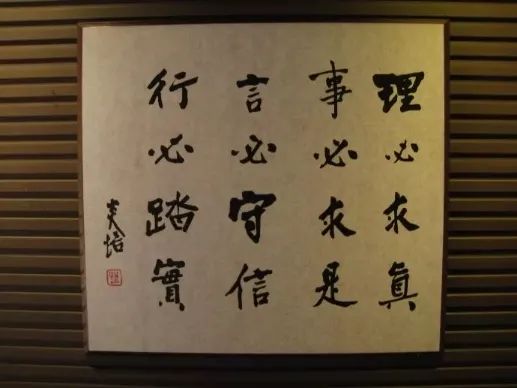 理必求眞
事必求是
言必守信
行必踏實
炎培